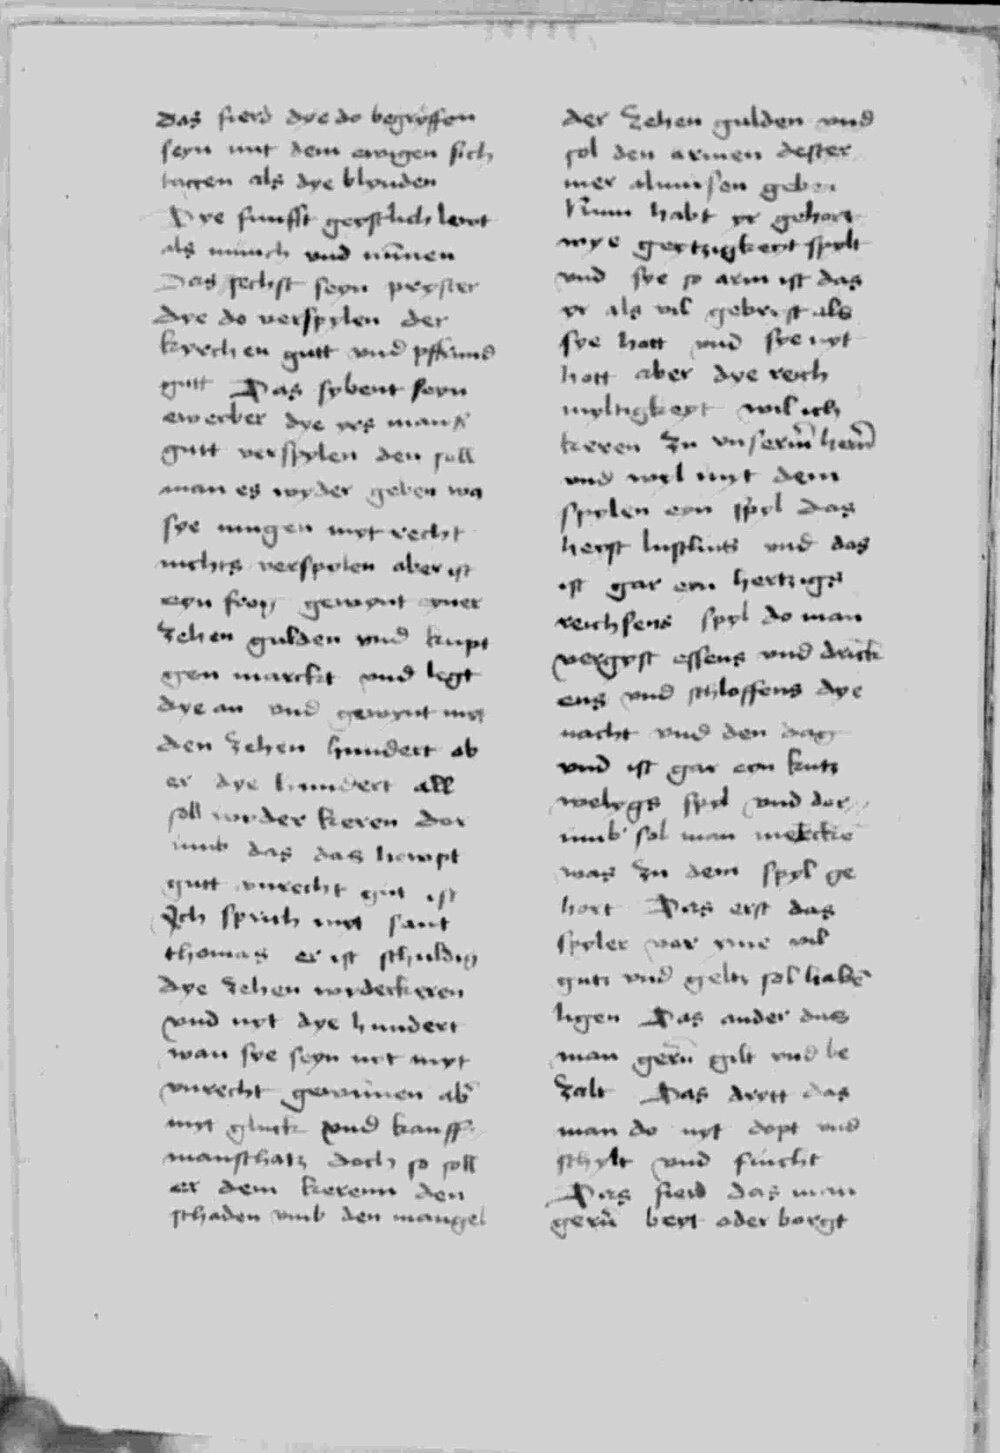 das fierd dye do begryffen
seyn mit dem ewigen sich
tagen als dye blynden
Dye funfft geystlich lewt
als münch vnd nünen
Das sechst seyn pryster
dye do verspylen der
kyrchen gutt vnd pffrund
gutt Das sybent seyn
eweiber dye yrs mans
gutt verspylen den soll
man es wyder geben wa
sye mugen myt recht
nichts verspylen aber ist
eyn frog gewynt eyner
zehen gulden vnd kupt
gen marckt vnd legt
dye an vnd gewynt myt
den zehen hundert ob
er dye hundert all
soll wyder keren dor
umb das das hewpt
gutt vnrecht gut ist
Ich sprich myt sant
thomas er ist schuldig
dye zehen wyderkeren
vnd nyt dye hundert
wan sye seyn nyt myt
vnrecht gewunen ab
myt gluck vnd kauff
manschatz doch so soll
er dem kerenn den
schaden vmb den mangel
der zehen gulden vnd
sol den armen dester
mer almusen geben
Num habt yr gehort
wye geytzigkeyt spylt
vnd sye so arm ist das
yr als vil gebrist als
sye hott vnd sye nyt
hott aber dye reich
myltigkeyt wil ich
keren zu vnserm hern
vnd wyl myt dem
spylen eyn spyl das
heyst lustlins vnd das
ist gar eyn hertzigs
reichsens spyl do man
vergyst essens vnd drick
ens vnd schloffens dye
nacht vnd den dag
vnd ist gar eyn kutz
welygs spyl vnd dor
umb sol man mercke
was zu dem spyl ge
hort Das erst das
spyler vor yme vil
gutz vnd geltz sol habe
ligen Das ander das
man gern gilt vnd be
zalt Das drytt das
man do nyt dopt vnd
schylt vnd flucht
Das fierd das man
gern beyt oder borgt